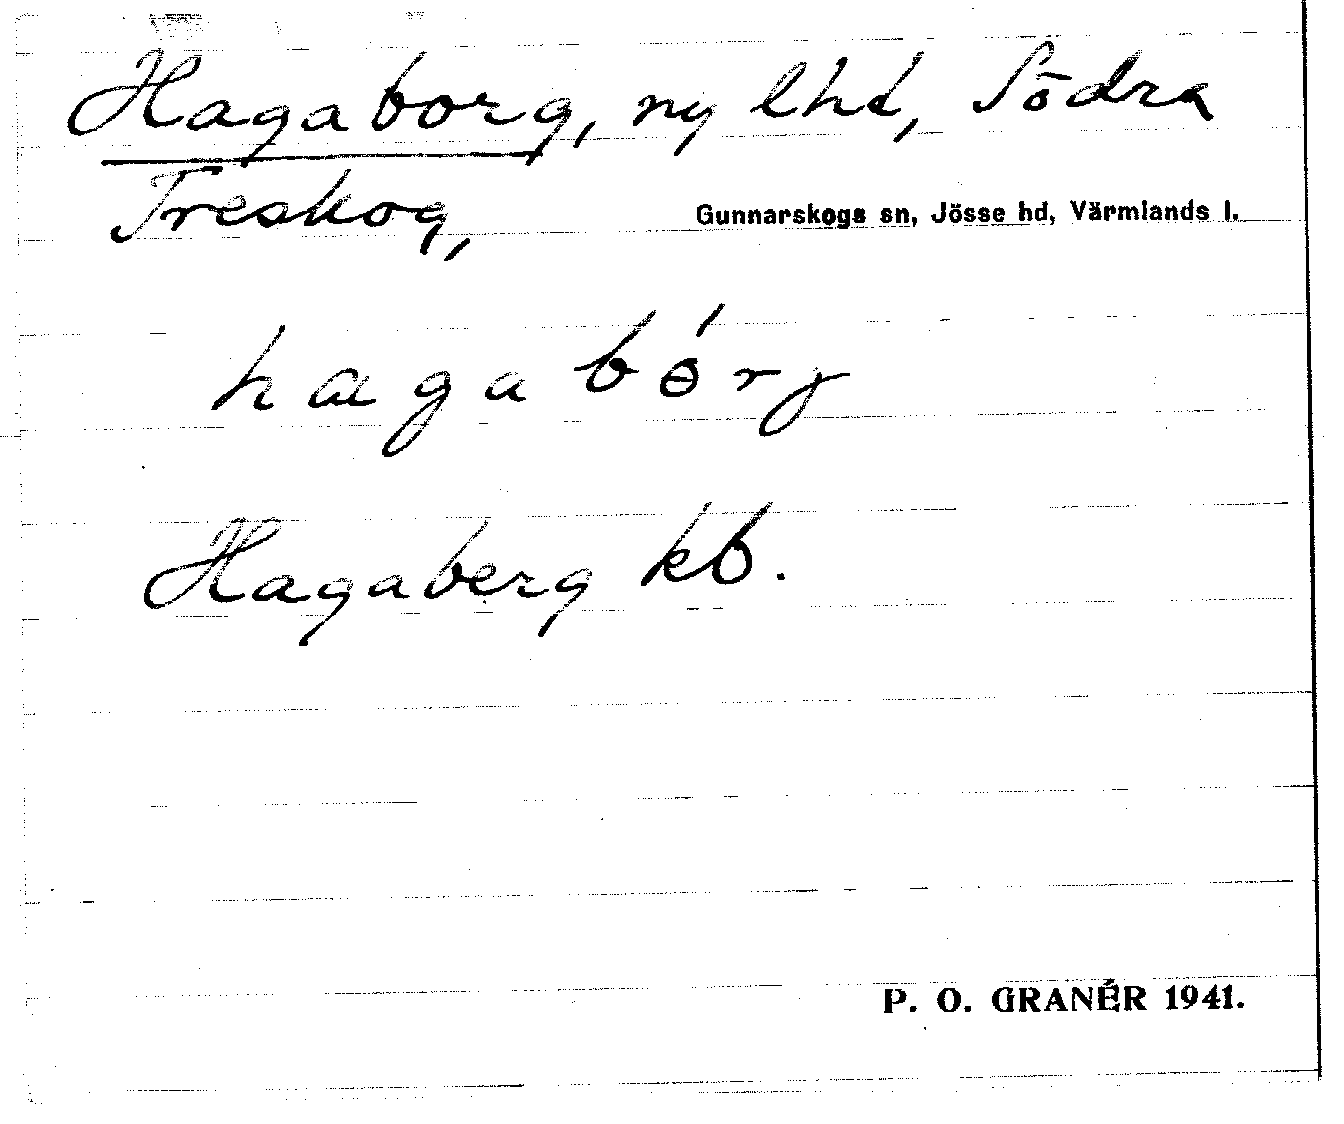 Hagaborg, ny lhd, Södra
Treskog,
Gunnarskogs sn, Jösse hd, Värmlands l.
hagabɵ́rj
Hagaberg kb.
P. O. GRANÉR 1941.